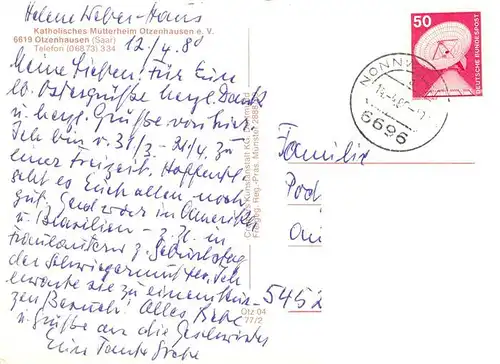 Helene Weber-Haus
Katholisches Mütterheim Otzenhausen e. V.
6619 Otzenhausen (Saar)
Telefon (06873) 334
12./4. 80
Meine Lieben! Für Eure
lb. Ostergrüße herzl. Dank
u. herzl. Grüße von hier.
Ich bin v. 31/3 - 21/4 zu
einer Freizeit. Hoffentl.
geht es Euch allen noch
gut. Gend war in Amerika
u. Brasilien - z. Zt. in
z. Geburtstag
der Schwiegermutter. Ich
erwarte sie zu einem kur-
zen Besuch! Alles Liebe
u. Grüße an die Geschwister
Eure Tante Grete
50
DEUTSCHE BUNDESPOST
NONNW
6696
Familie
Pod
545
Cramers Kunstanstalt KG, Dortmund
Freigeg. Reg.-Präs. Münster
Otz 04
77/2